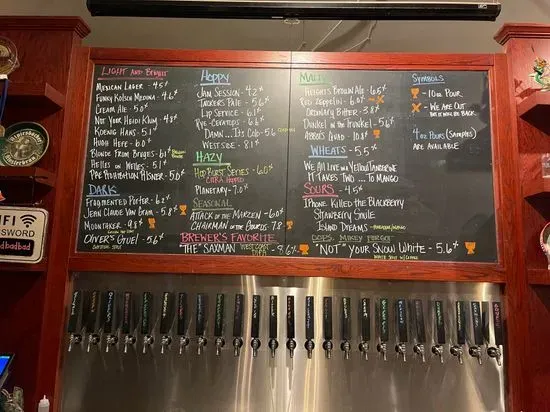 LIGHT AND BRIGHT
MEXICAN LAGER - 4.5%
FUNKY KOLSCH MEDINA - 4.6%
CREAM ALE - 5.0%
NOT YOUR HEIDI KLUM - 4.8%
KOENIG HANS - 5.1
HUGH HEFE - 6.0
BLONDE FROM BRUGES - 6.1
HELLES ON HEELES - 5.1
PRE PROHIBITION PILSNER - 5.0%
DARK
FRAGMENTED PORTER - 6.2%
JEAN CLAUDE VAN GRAM - 5.8%
MOONTAKER - 9.8%
OLIVER'S GRUEL - 5.6%
HOPPY
JAM SESSION - 4.2%
TINKERS PALE - 5.6%
LIP SERVICE - 6.1%
RYE-CERATOPS - 6.6%
DAMN... ITS COLD - 5.6
WEST SIDE - 8.1%
HAZY
HOP BURST SERIES - 6.0%
CITRA
PLANETARY - 7.0%
SEASONAL
ATTACK OF THE MARZEN - 6.0%
CHAIRMAN OF THE GOURDS - 7.8
BREWER'S FAVORITE
"THE SAXMAN" WEST COAST DIPA - 8.6%
MALTY
HEIGHTS BROWN ALE - 6.5%
RED ZEPPELIN - 6.0
ORDINARY BITTER - 3.8%
DUNKEL IN THE TRUNKEL - 5.6%
ABBOTS QUAD - 10.8%
WHEATS - 5.5%
WE ALL LIVE IN A YELLOW TANGERINE
IT TAKES TWO ... TO MANGO
SOURS - 4.5%
IPHONE KILLED THE BLACKBERRY
STRAWBERRY SMILE
ISLAND DREAMS
OOPS, MIKEY FORGOT
"NOT" YOUR SNOW WHITE - 5.6%
WHITE STOUT W/ COFFEE
SYMBOLS
- 10OZ POUR
- WE ARE OUT
BUT IT WILL BE BACK
4OZ POURS (SAMPLES)
ARE AVAILABLE
WIFI
PASSWORD
badbadbad